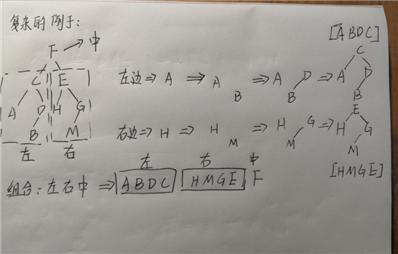 复杂的例子:
F → 中
[ABDC]
C E
A D H G
B M
左 右
左边 ⇒ A ⇒ A B ⇒ A D B ⇒ C A D B
右边 ⇒ H ⇒ H M ⇒ H G M ⇒ E H G M
[HMGE]
左 右 中
组合: 左右中 ⇒ ABDC HMGE F